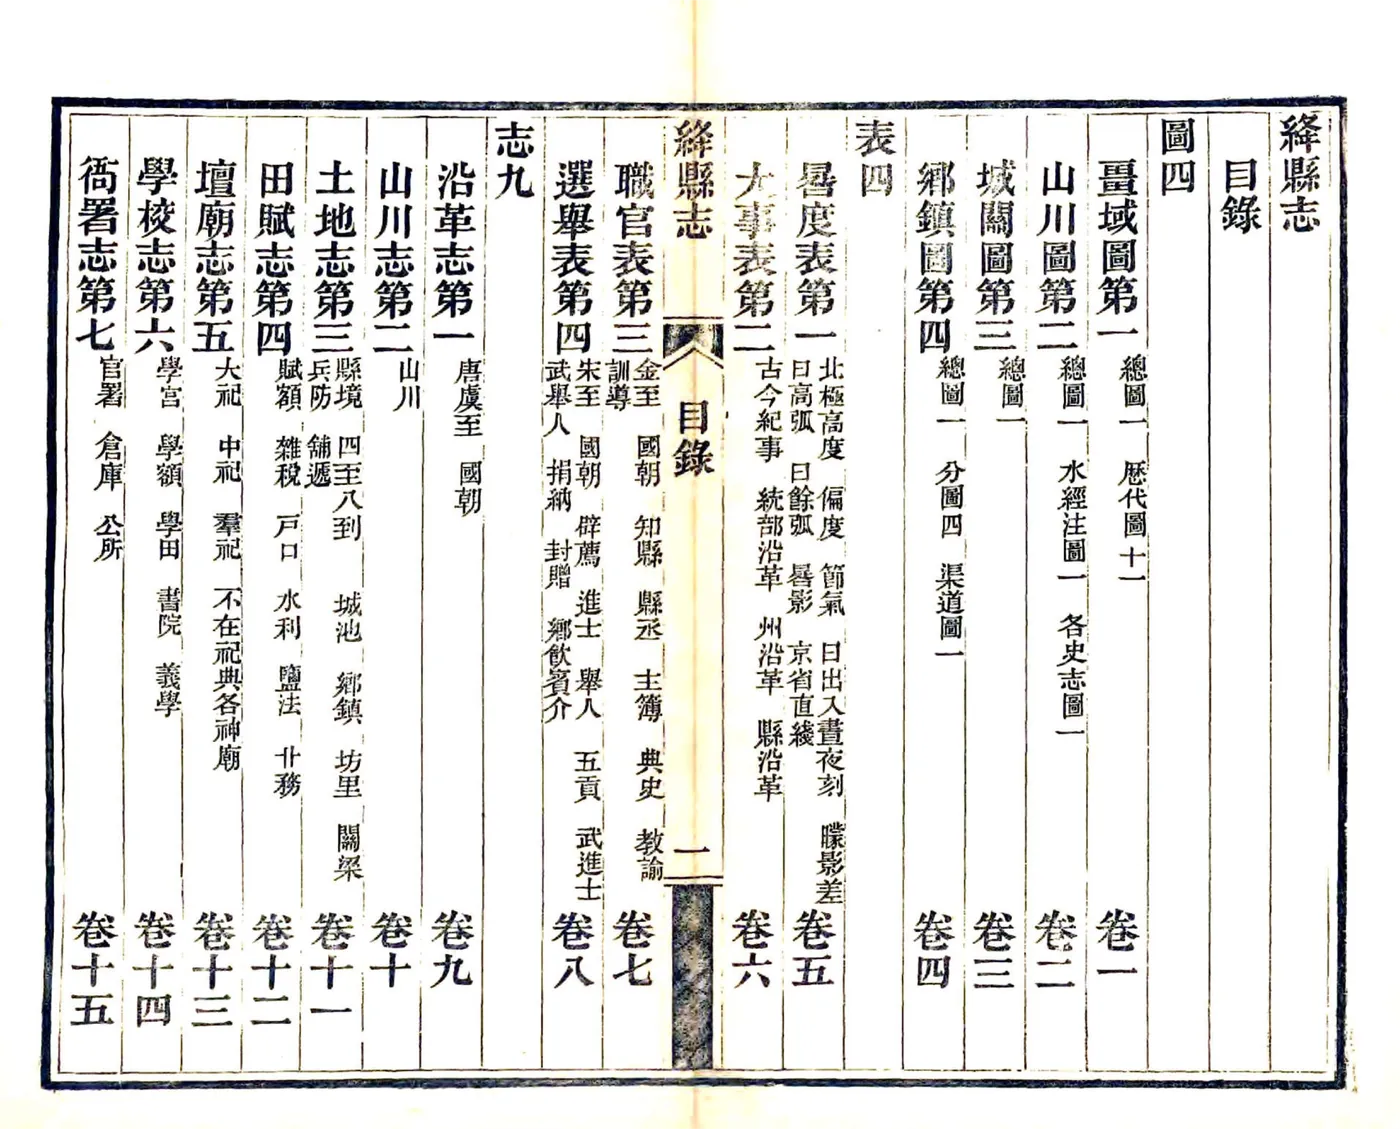 絳縣志
目錄
圖四
畺域圖第一 總圖一 歷代圖十一 卷一
山川圖第二 總圖一 水經注圖一 各史志圖一 卷二
城關圖第三 總圖一 卷三
鄉鎮圖第四 總圖一 分圖四 渠道圖一 卷四
表四
晷度表第一 北極高度 偏度 節氣 日出入晝夜刻 矇影差
日高弧 日餘弧 晷影 京省直綫 卷五
大事表第二 古今紀事 統部沿革 州沿革 縣沿革 卷六
絳縣志 目錄 一
職官表第三 金至 國朝 知縣 縣丞 主簿 典史 教諭
訓導 卷七
選舉表第四 宋至 國朝 辟薦 進士 舉人 五貢 武進士
武舉人 捐納 封贈 鄉飲賓介 卷八
志九
沿革志第一 唐虞至 國朝 卷九
山川志第二 山川 卷十
土地志第三 縣境 四至八到 城池 鄉鎮 坊里 關梁
兵防 舖遞 卷十一
田賦志第四 賦額 雜稅 戶口 水利 鹽法 廿務 卷十二
壇廟志第五 大祀 中祀 羣祀 不在祀典各神廟 卷十三
學校志第六 學宮 學額 學田 書院 義學 卷十四
衙署志第七 官署 倉庫 公所 卷十五